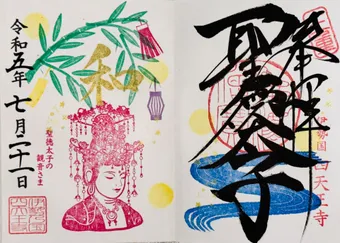 奉拝
伊勢国 四天王寺
聖徳太子
和
聖徳太子の
観音さま
令和五年 七月二十一日